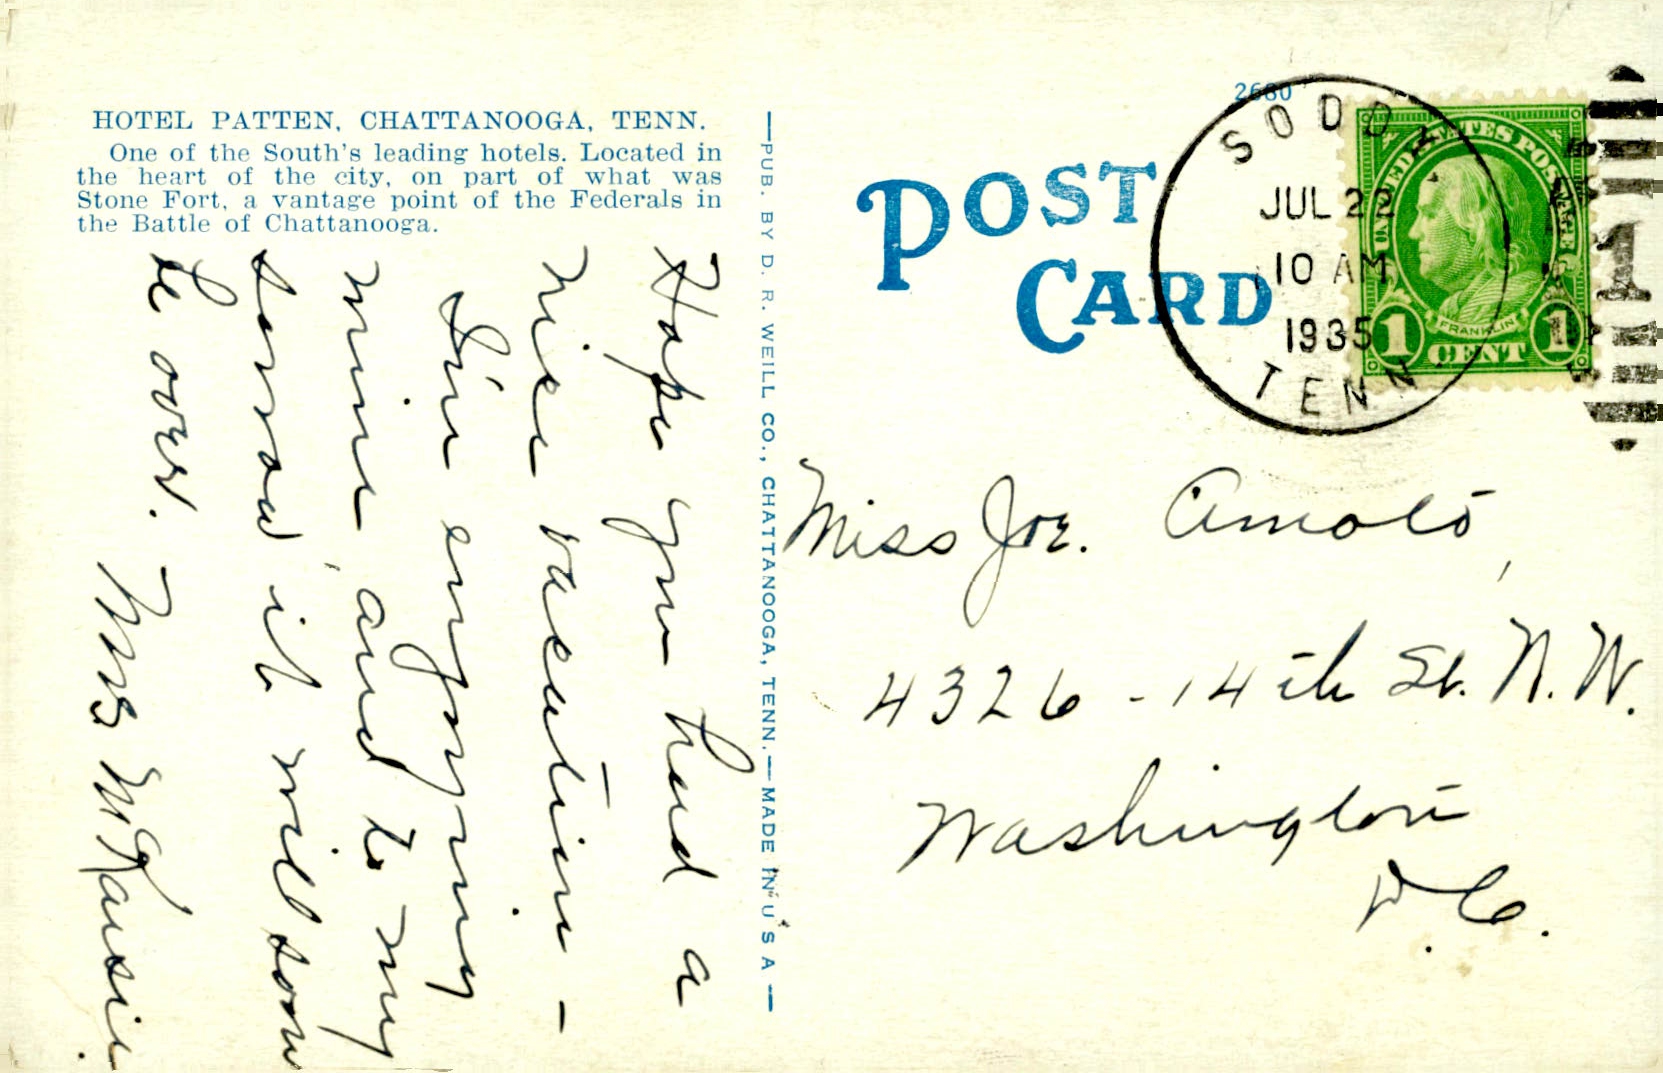 HOTEL PATTEN, CHATTANOOGA, TENN.
One of the South's leading hotels. Located in
the heart of the city, on part of what was
Stone Fort, a vantage point of the Federals in
the Battle of Chattanooga.
Hope you had a
nice vacation -
I'm enjoying
mine and to my
sorrow it will soon
be over.
Mrs
PUB. BY D. R. WEILL CO., CHATTANOOGA, TENN.—MADE IN U S A
2680
POST
CARD
SODDY
JUL 22
10 AM
1935
TENN.
UNITED STATES POSTAGE
FRANKLIN
1 CENT 1
1
Miss Joe.
4326 - 14th St. N. W.
Washington
D. C.